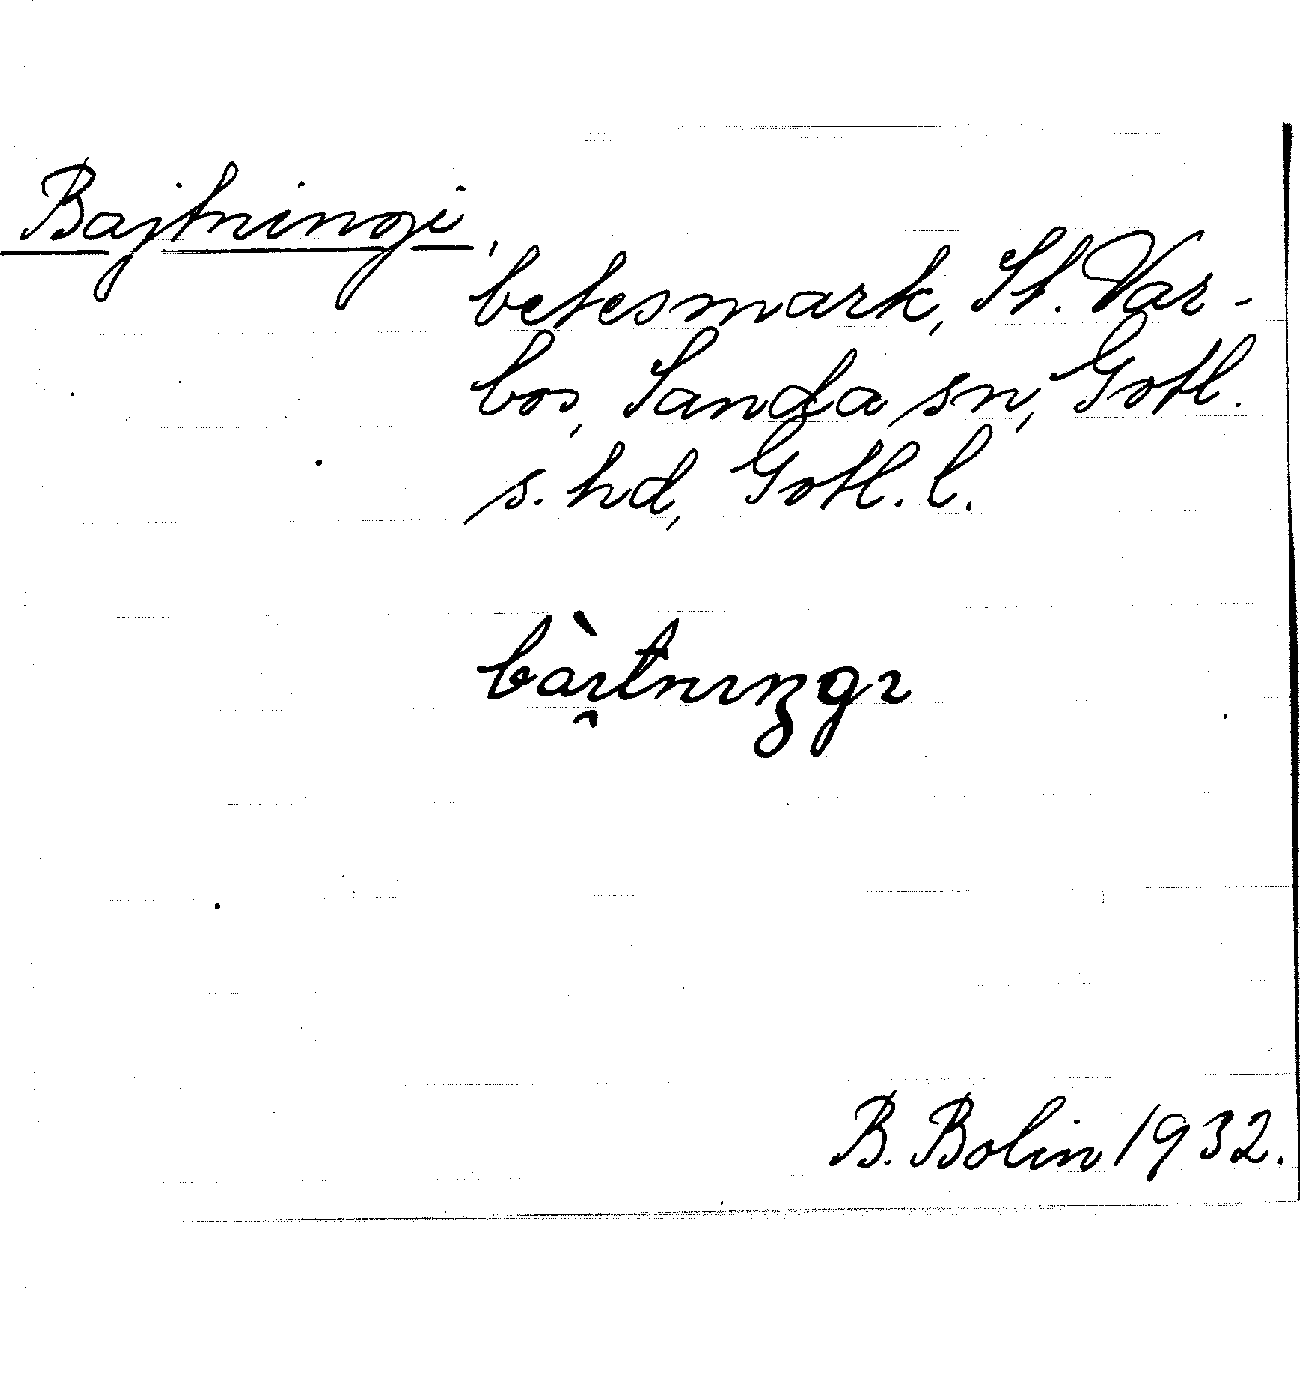 Bajtningi,
betesmark, St. Var-
bos, Sanda sn, Gotl.
s. hd, Gotl. l.
bàı̯tnıŋgı
B. Bolin 1932.